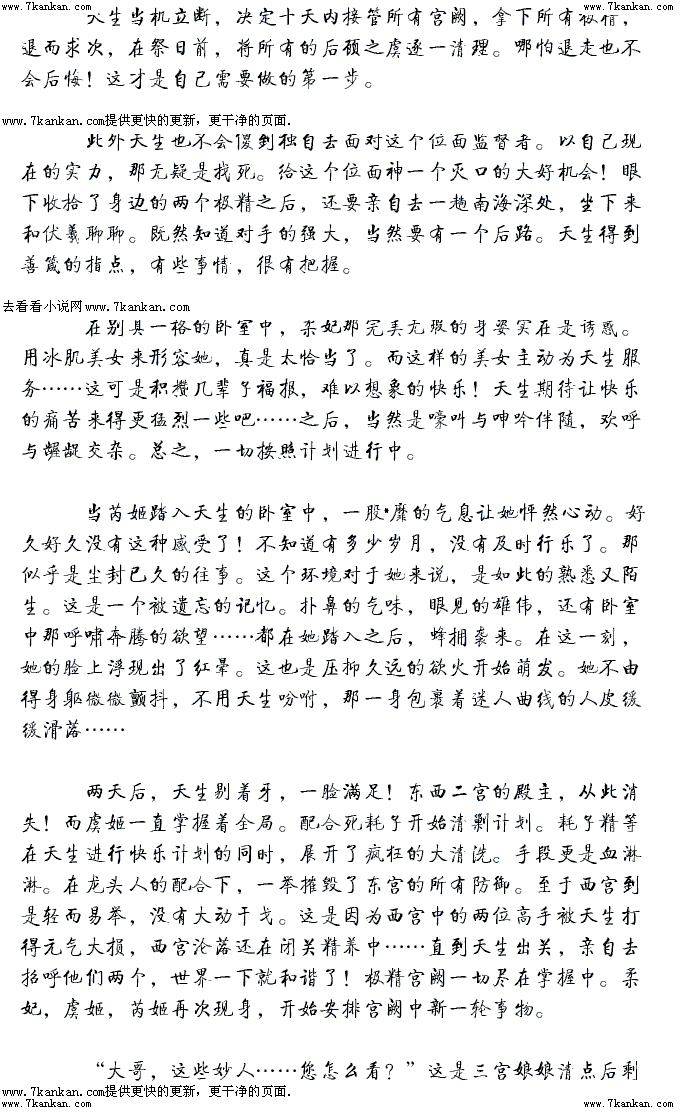 www.7kankan.com www.7kankan.com
天生当机立断，决定十天内接管所有宫阙，拿下所有极精，
退而求次，在祭日前，将所有的后硕之虞逐一清理。哪怕退走也不
会后悔！这才是自己需要做的第一步。
www.7kankan.com提供更快的更新，更干净的页面.
此外天生也不会傻到独自去面对这个位面监督者。以自己现
在的实力，那无疑是找死。给这个位面神一个灭口的大好机会！眼
下收拾了身边的两个极精之后，还要亲自去一趟南海深处，坐下来
和伏羲聊聊。既然知道对手的强大，当然要有一个后路。天生得到
善箴的指点，有些事情，很有把握。
去看看小说网www.7kankan.com
在别具一格的卧室中，柔妃那完美无瑕的身姿实在是诱惑。
用冰肌美女来形容她，真是太恰当了。而这样的美女主动为天生服
务……这可是积攒几辈子福报，难以想象的快乐！天生期待让快乐
的痛苦来得更猛烈一些吧……之后，当然是嚎叫与呻吟伴随，欢呼
与龌龊交杂。总之，一切按照计划进行中。
当芮姬踏入天生的卧室中，一股*靡的气息让她怦然心动。好
久好久没有这种感受了！不知道有多少岁月，没有及时行乐了。那
似乎是尘封已久的往事。这个环境对于她来说，是如此的熟悉又陌
生。这是一个被遗忘的记忆。扑鼻的气味，眼见的雄伟，还有卧室
中那呼啸奔腾的欲望……都在她踏入之后，蜂拥袭来。在这一刻，
她的脸上浮现出了红晕。这也是压抑久远的欲火开始萌发。她不由
得身躯微微颤抖，不用天生吩咐，那一身包裹着迷人曲线的人皮缓
缓滑落……
两天后，天生剔着牙，一脸满足！东西二宫的殿主，从此消
失！而虞姬一直掌握着全局。配合死耗子开始清剿计划。耗子精等
在天生进行快乐计划的同时，展开了疯狂的大清洗。手段更是血淋
淋。在龙头人的配合下，一举摧毁了东宫的所有防御。至于西宫到
是轻而易举，没有大动干戈。这是因为西宫中的两位高手被天生打
得元气大损，西宫沦落还在闭关精养中……直到天生出关，亲自去
招呼他们两个，世界一下就和谐了！极精宫阙一切尽在掌握中。柔
妃，虞姬，芮姬再次现身，开始安排宫阙中新一轮事物。
“大哥，这些妙人……您怎么看？”这是三宫娘娘清点后剩
www.7kankan.com提供更快的更新，更干净的页面.
www.7kankan.com www.7kankan.com